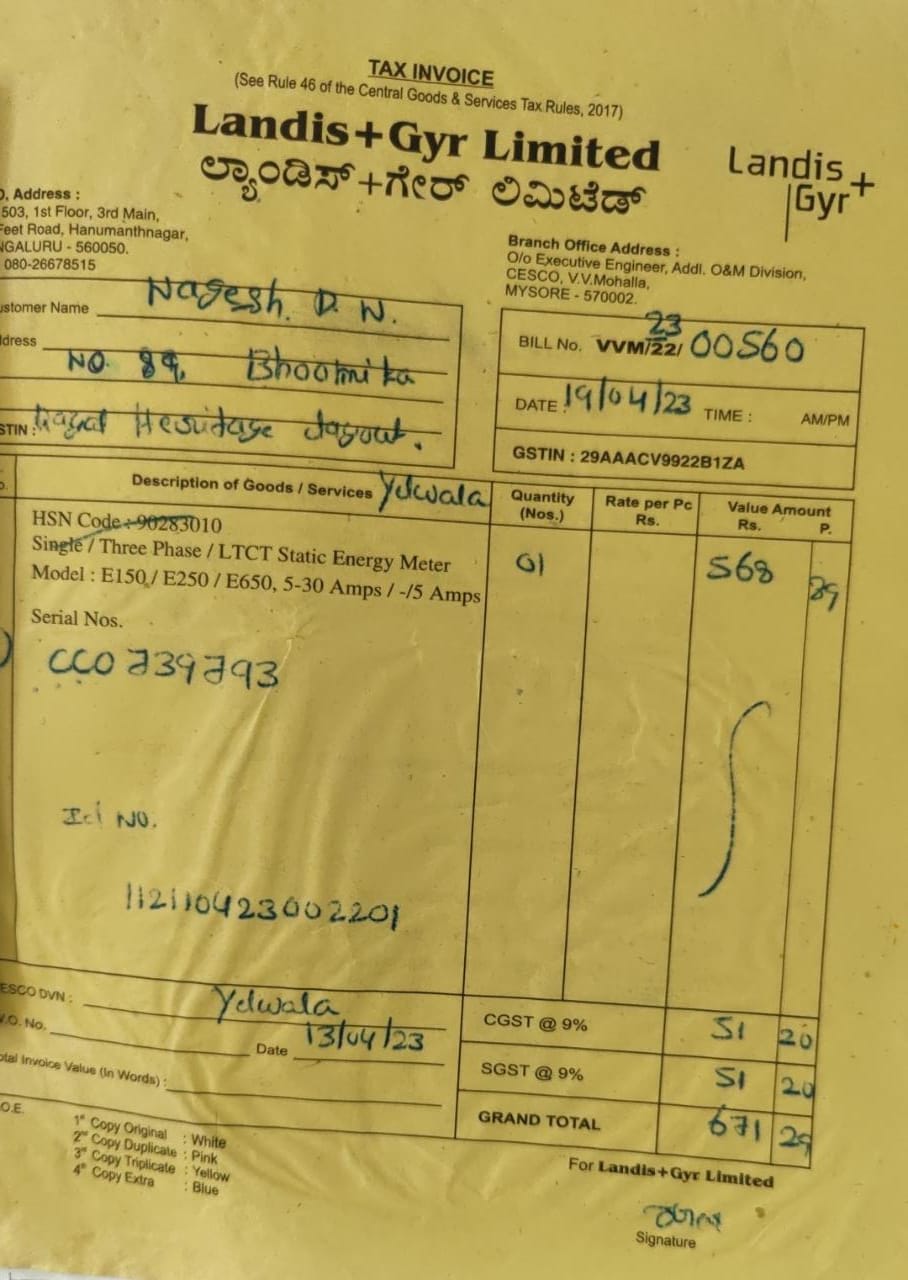 TAX INVOICE
(See Rule 46 of the Central Goods & Services Tax Rules, 2017)
Landis+Gyr Limited
ಲ್ಯಾಂಡಿಸ್+ಗೇರ್ ಲಿಮಿಟೆಡ್
Landis
Gyr+
Address :
503, 1st Floor, 3rd Main,
Feet Road, Hanumanthnagar,
NGALURU - 560050.
080-26678515
Branch Office Address :
O/o Executive Engineer, Addl. O&M Division,
CESCO, V.V.Mohalla,
MYSORE - 570002.
ustomer Name Nagesh. D. N.
dress NO. 89, Bhoomika
STIN : Heritage Layout.
BILL No. VVM/22/ 23 00560
DATE : 19/04/23 TIME : AM/PM
GSTIN : 29AAACV9922B1ZA
Description of Goods / Services Yelwala
Quantity (Nos.)
Rate per Pc Rs.
Value Amount Rs. P.
HSN Code : 90283010
Single / Three Phase / LTCT Static Energy Meter
Model : E150 / E250 / E650, 5-30 Amps / -/5 Amps
01 568 89
Serial Nos.
CC0739793
NO.
112110423002201
ESCO DVN : Yelwala
W.O. No. Date 13/04/23
otal Invoice Value (In Words) :
CGST @ 9% 51 20
SGST @ 9% 51 20
GRAND TOTAL 671 29
.O.E.
1st Copy Original : White
2nd Copy Duplicate : Pink
3rd Copy Triplicate : Yellow
4th Copy Extra : Blue
For Landis+Gyr Limited
Signature